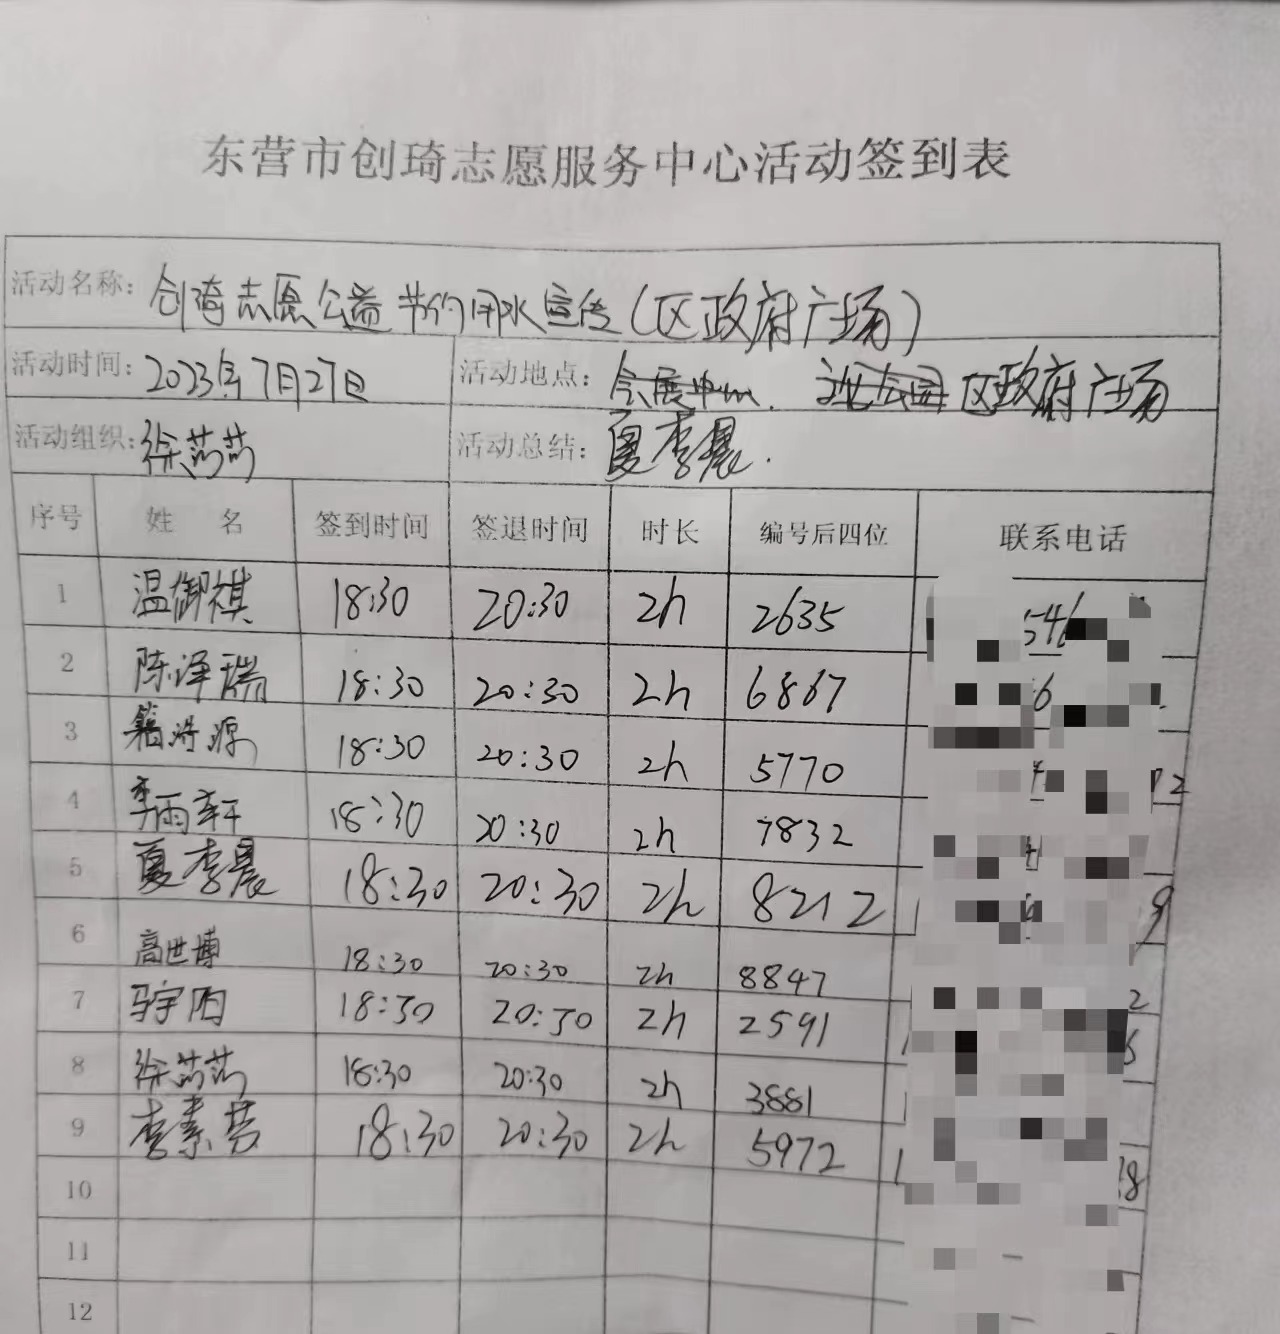 东营市创琦志愿服务中心活动签到表
活动名称：创琦志愿公益节约用水宣传（区政府广场）
活动时间：2023年7月27日 活动地点：会展中心. 区政府广场
活动组织：徐芸芸 活动总结：夏李晨.
序号 姓 名 签到时间 签退时间 时长 编号后四位 联系电话
1 温御祺 18:30 20:30 2h 2635 546
2 陈泽瑞 18:30 20:30 2h 6867 6
3 籍浩源 18:30 20:30 2h 5770
4 李雨轩 18:30 20:30 2h 7832
5 夏李晨 18:30 20:30 2h 8212 9
6 高世博 18:30 20:30 2h 8847
7 马宇阳 18:30 20:30 2h 2591
8 18:30 20:30 2h 3881
9 李素芸 18:30 20:30 2h 5972
10
11
12